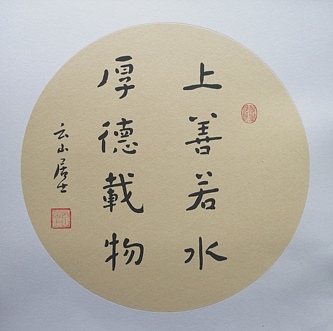 上善若水
厚德載物
云山居士